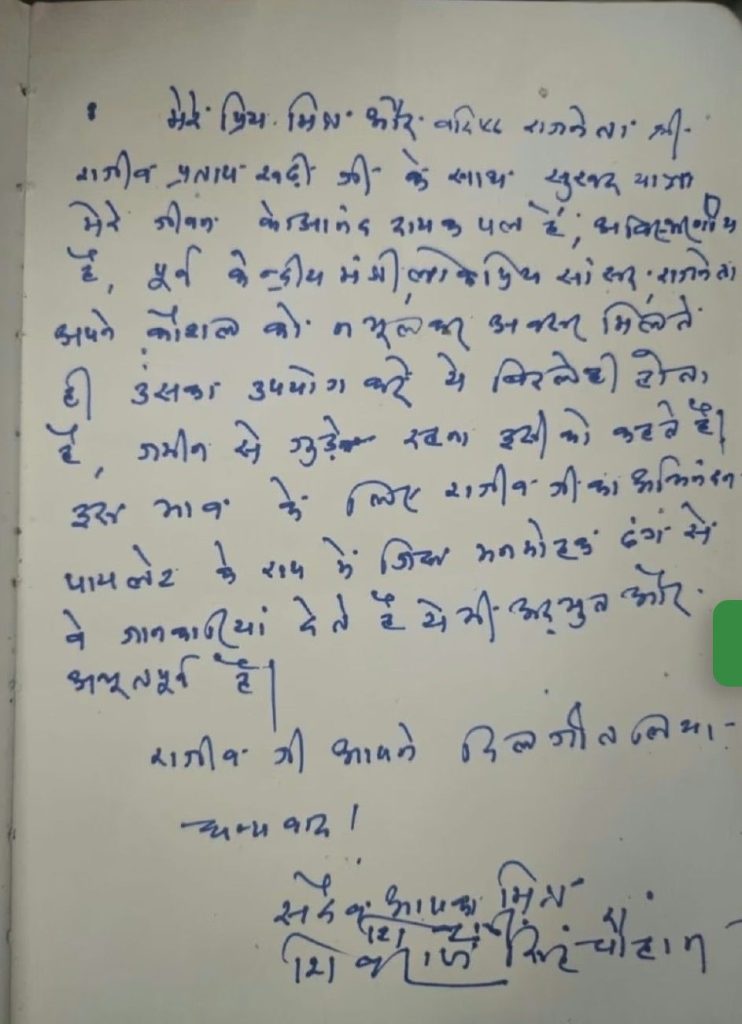 मेरे प्रिय मित्र और वरिष्ठ राजनेता श्री
राजीव प्रताप रूडी जी के साथ सुखद यात्रा
मेरे जीवन के आनंद दायक पल हैं, अविस्मरणीय
है, पूर्व केन्द्रीय मंत्री लोकप्रिय सांसद राजनेता
अपने कौशल को न भूलकर अवसर मिलते
ही उसका उपयोग करे ये बिरले ही होता
है, जमीन से जुड़े रहना इसी को कहते है।
इस भाव के लिए राजीव जी का अभिनंदन
पायलेट के रूप में जिस मनमोहक ढंग से
वे जानकारियां देते है ये भी अद्भुत और
अभूतपूर्व है।
राजीव जी आपने दिल जीत लिया -
धन्यवाद।
सदैव आपका मित्र
शिवराज सिंह चौहान